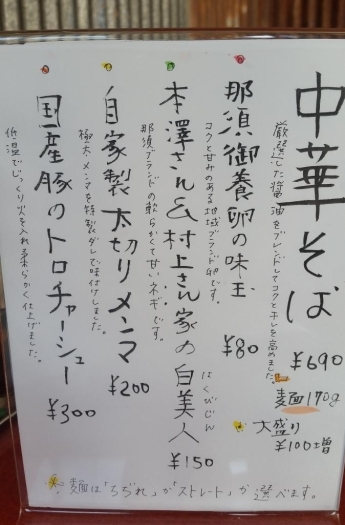 中華そば
厳選した醤油をブレンドしてコクとキレを高めました。
¥690
麺170g
大盛り
¥100増
那須御養卵の味玉
コクと甘みのある地域ブランド卵です。
¥80
本澤さん&村上さん家の白美人
はくびじん
那須ブランドの軟らかくて甘いネギです。
¥150
自家製太切りメンマ
極太メンマを特製ダレで味付けしました。
¥200
国産豚のトロチャーシュー
低温でじっくり火を入れ柔らかく仕上げました。
¥300
麺は「ちぢれ」か「ストレート」か選べます。